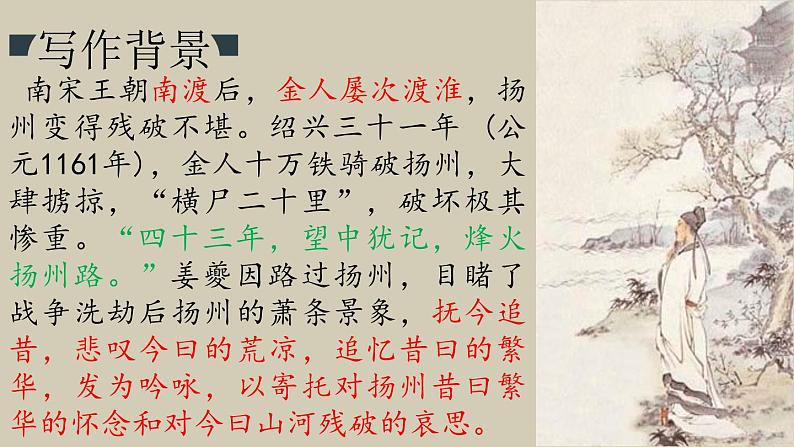 写作背景
南宋王朝南渡后，金人屡次渡淮，扬
州变得残破不堪。绍兴三十一年 (公
元1161年)，金人十万铁骑破扬州，大
肆掳掠，“横尸二十里”，破坏极其
惨重。“四十三年，望中犹记，烽火
扬州路。”姜夔因路过扬州，目睹了
战争洗劫后扬州的萧条景象，抚今追
昔，悲叹今日的荒凉，追忆昔日的繁
华，发为吟咏，以寄托对扬州昔日繁
华的怀念和对今日山河残破的哀思。